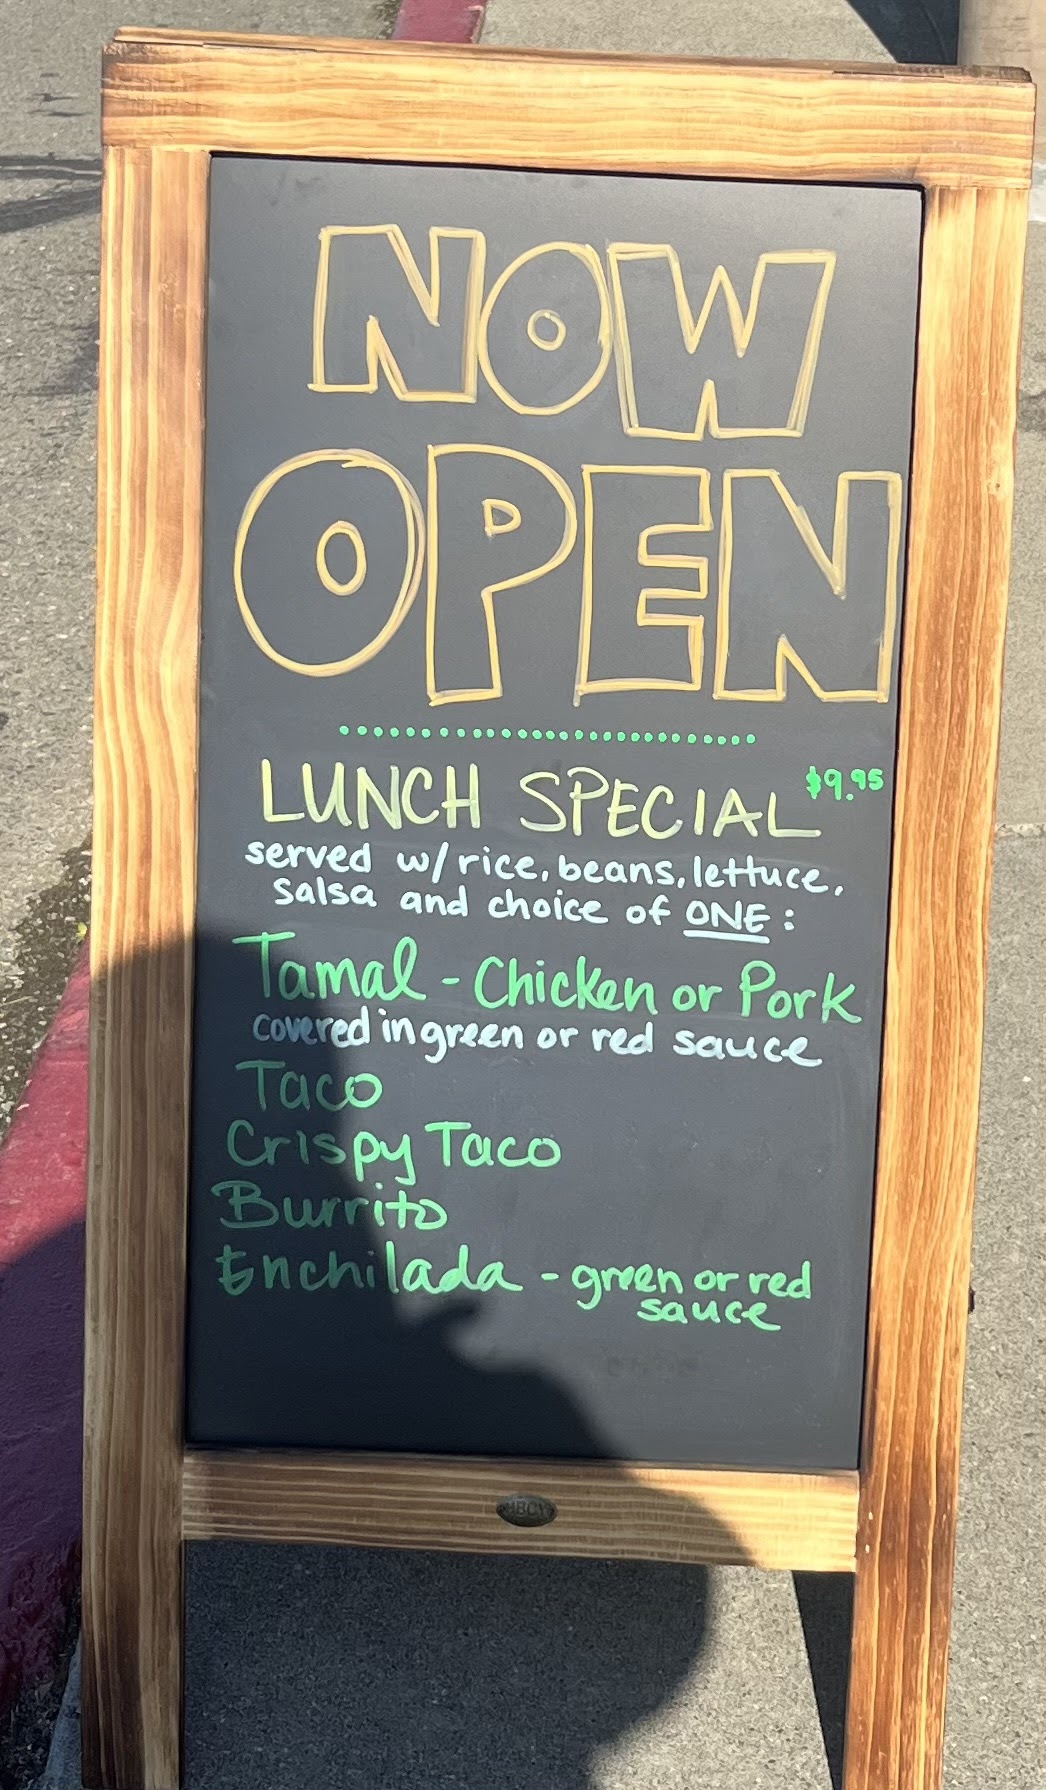 NOW
OPEN
LUNCH SPECIAL $9.95
served w/ rice, beans, lettuce,
salsa and choice of ONE:
Tamal - Chicken or Pork
covered in green or red sauce
Taco
Crispy Taco
Burrito
Enchilada - green or red
sauce
HBCY